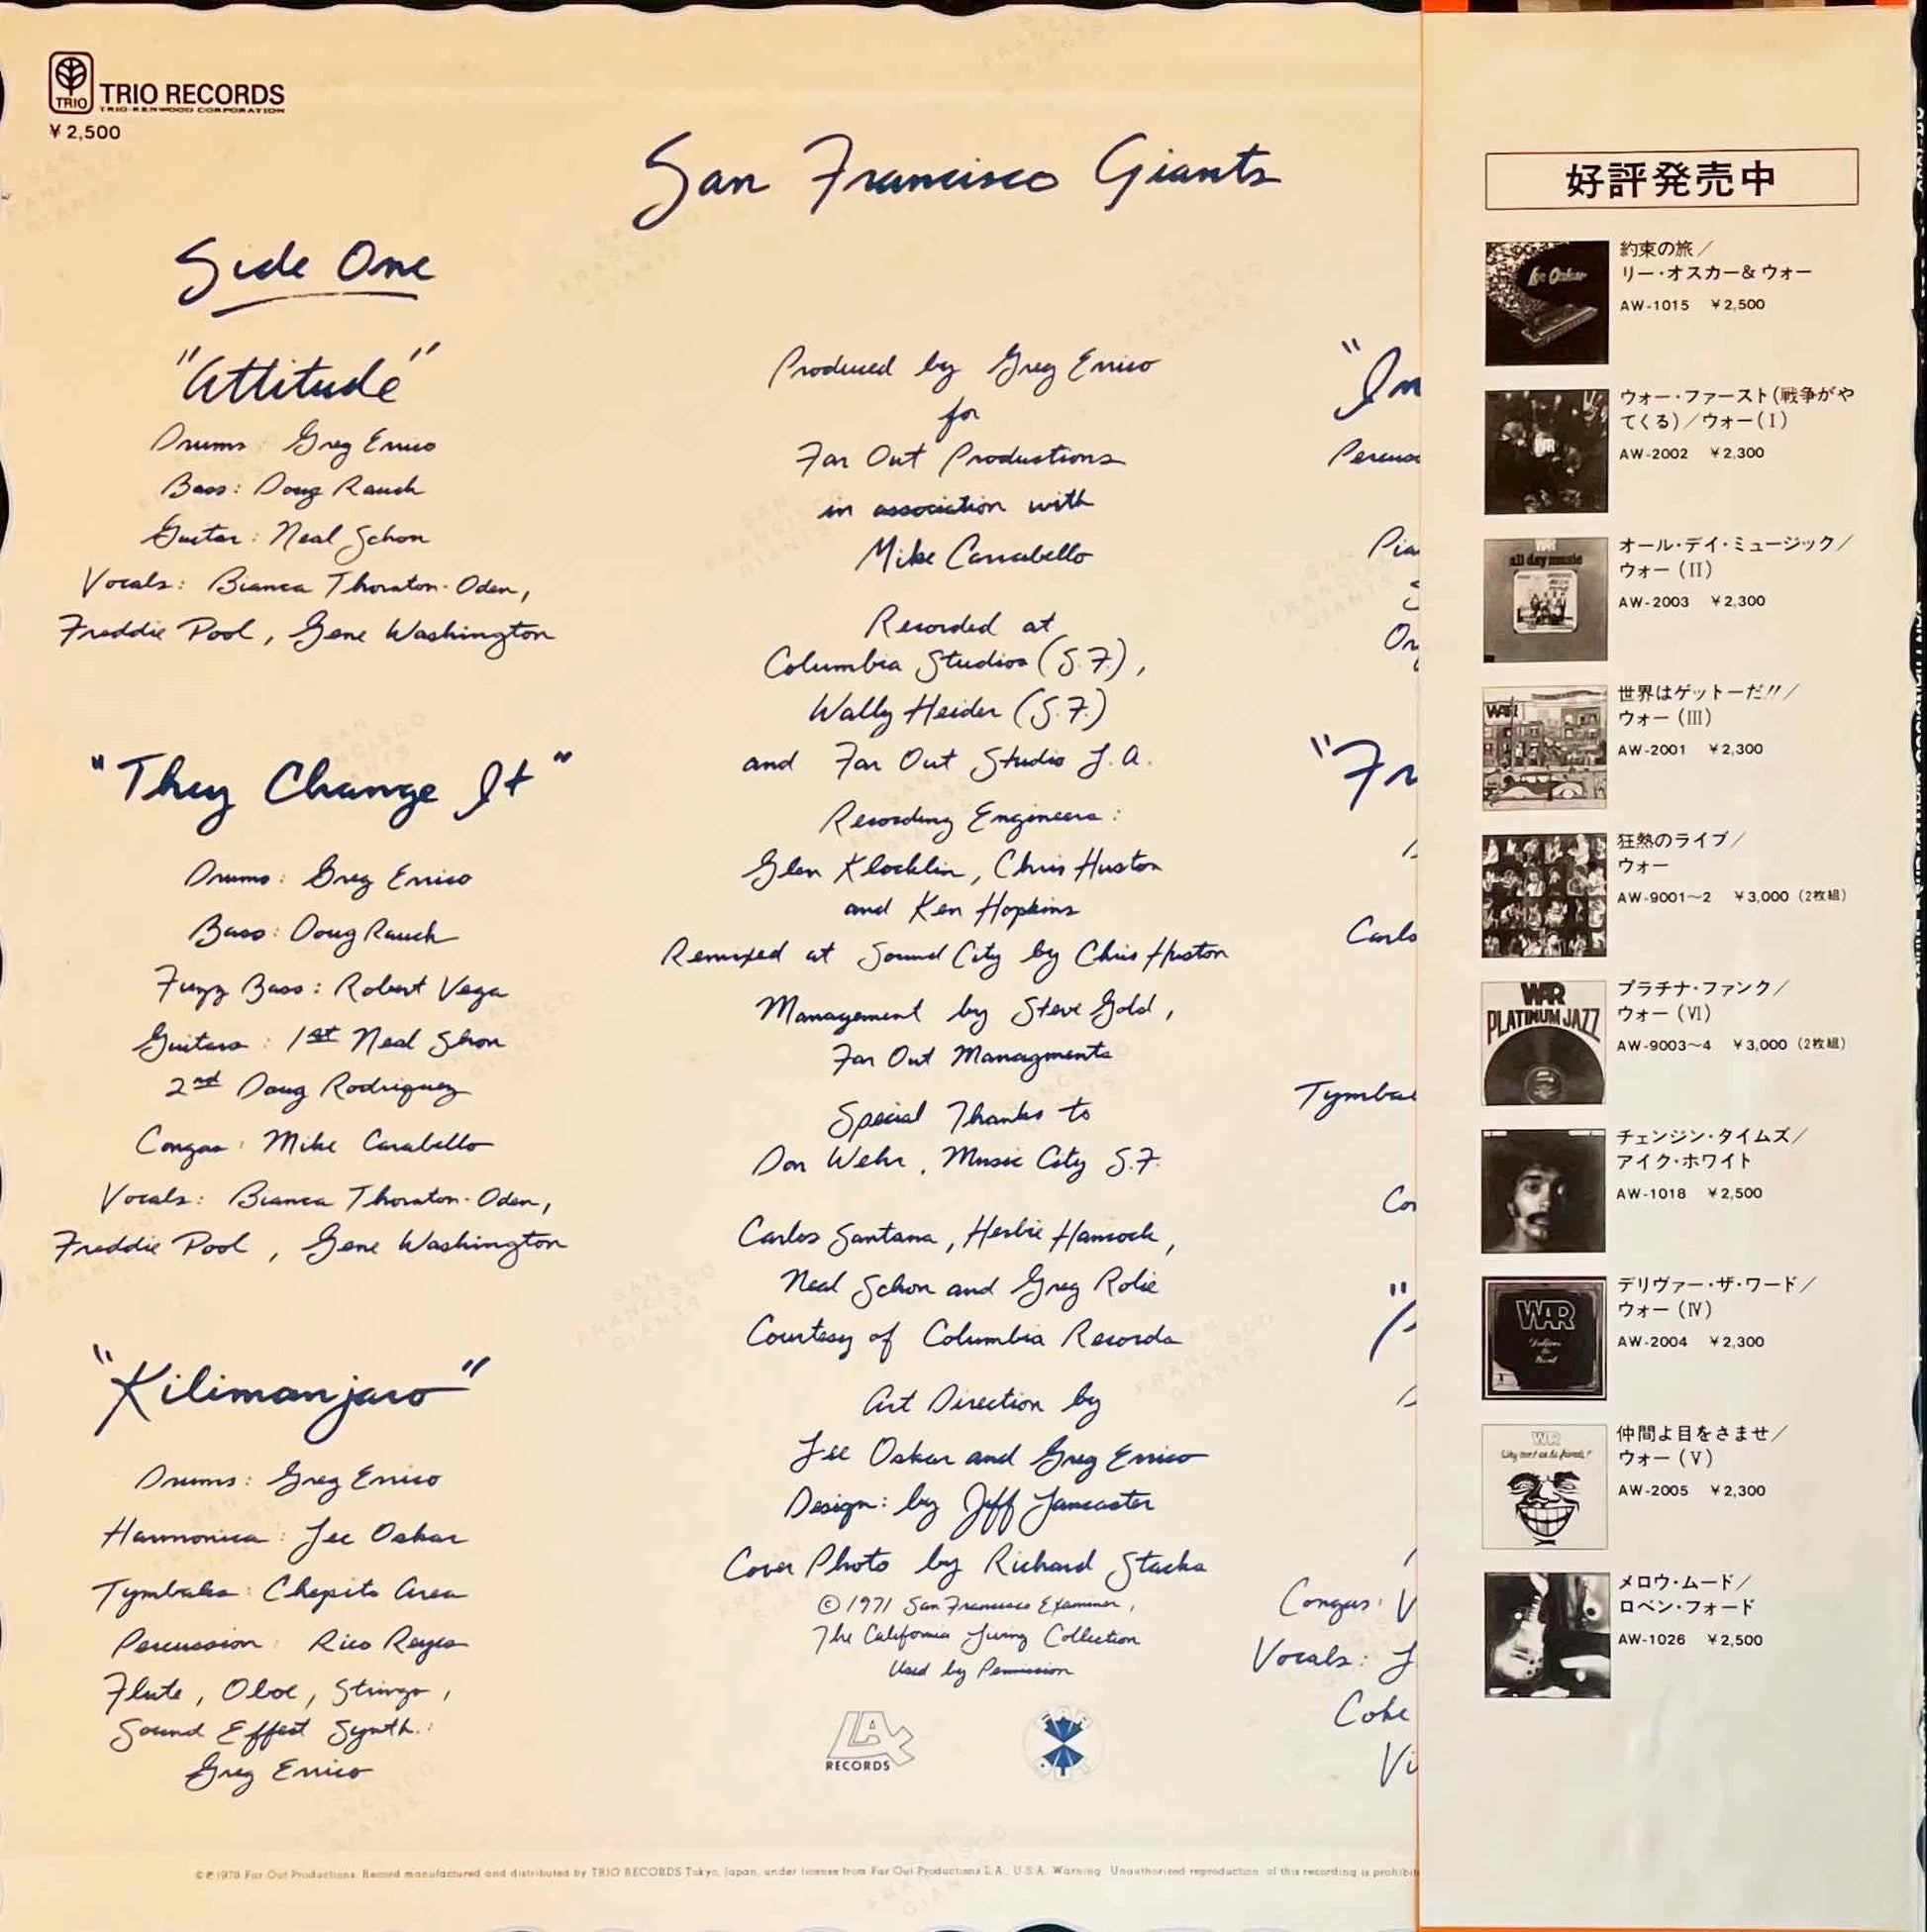 TRIO
TRIO RECORDS
TRIO-KENWOOD CORPORATION
¥2,500
San Francisco Giants
Side One
"Attitude"
Drums: Greg Errico
Bass: Doug Rauch
Guitar: Neal Schon
Vocals: Bianca Thornton-Oden,
Freddie Pool, Gene Washington
"They Change It"
Drums: Greg Errico
Bass: Doug Rauch
Fuzz Bass: Robert Vega
Guitars: 1st Neal Shon
2nd Doug Rodriguez
Congas: Mike Carabello
Vocals: Bianca Thornton-Oden,
Freddie Pool, Gene Washington
"Kilimanjaro"
Drums: Greg Errico
Harmonica: Lee Oskar
Tymbales: Chepito Area
Percussion: Rico Reyes
Flute, Oboe, Strings,
Sound Effect Synth.:
Greg Errico
Produced by Greg Errico
for
Far Out Productions
in association with
Mike Carrabello
Recorded at
Columbia Studios (S.F.),
Wally Heider (S.F.)
and Far Out Studio L.A.
Recording Engineers:
Glen Klocklin, Chris Huston
and Ken Hopkins
Remixed at Sound City by Chris Huston
Management by Steve Gold,
Far Out Managments
Special Thanks to
Don Wehr, Music City S.F.
Carlos Santana, Herbie Hancock,
Neal Schon and Greg Rolie
Courtesy of Columbia Records
Art Direction by
Lee Oskar and Greg Errico
Design: by Jeff Lancaster
Cover Photo by Richard Stacks
©1971 San Francisco Examiner,
The California Living Collection
Used by Permission
LAX
RECORDS
FAR OUT
"In
Percus
Pia
Or
"Fr
Carlo
Tymbal
Con
Congas: V
Vocals: L
Coke
Vi
©℗1978 Far Out Productions. Record manufactured and distributed by TRIO RECORDS Tokyo, Japan, under license from Far Out Productions L.A., U.S.A. Warning: Unauthorized reproduction of this recording is prohibit
好評発売中
Lee Oskar
約束の旅／
リー・オスカー&ウォー
AW-1015 ¥2,500
ウォー・ファースト(戦争がや
てくる)／ウォー(I)
AW-2002 ¥2,300
all day music
オール・デイ・ミュージック／
ウォー(II)
AW-2003 ¥2,300
WAR
世界はゲットーだ!!／
ウォー(III)
AW-2001 ¥2,300
狂熱のライブ／
ウォー
AW-9001〜2 ¥3,000 (2枚組)
WAR
PLATINUM JAZZ
プラチナ・ファンク／
ウォー(VI)
AW-9003〜4 ¥3,000 (2枚組)
チェンジン・タイムズ／
アイク・ホワイト
AW-1018 ¥2,500
WAR
Deliver
the
Word
デリヴァー・ザ・ワード／
ウォー(IV)
AW-2004 ¥2,300
WAR
Why can't we be friends?
仲間よ目をさませ／
ウォー(V)
AW-2005 ¥2,300
メロウ・ムード／
ロベン・フォード
AW-1026 ¥2,500